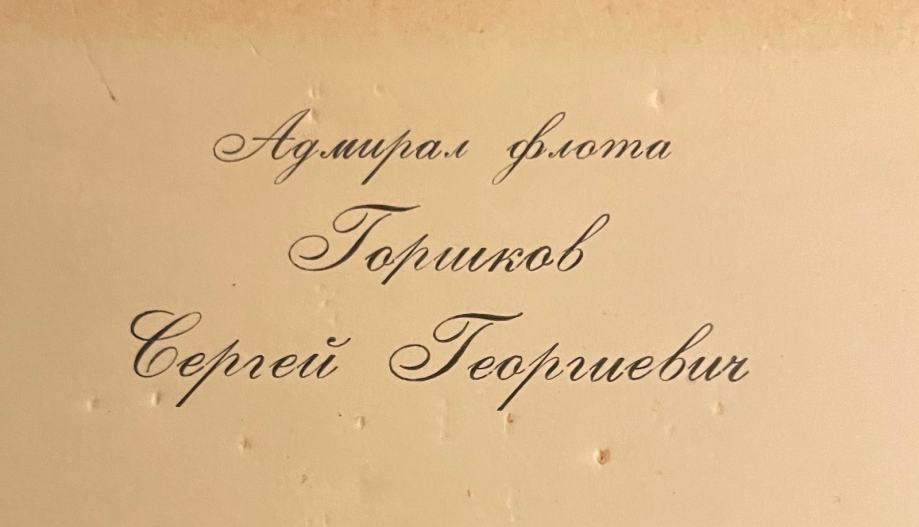 Адмирал флота
Горшков
Сергей Георгиевич